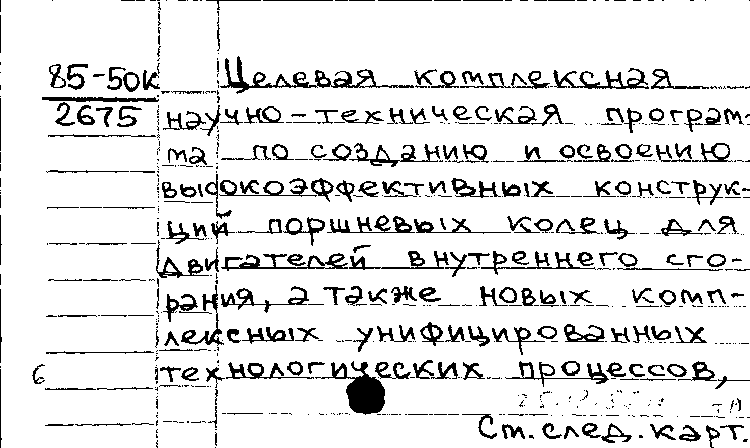 85-50к Целевая комплексная
2675 научно-техническая програм-
ма по созданию и освоению
высокоэффективных конструк-
ций поршневых колец для
двигателей внутреннего сго-
рания, а также новых комп-
лексных унифицированных
6 технологических процессов,
См. след. карт.